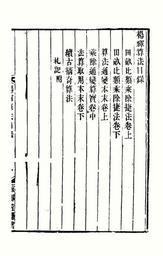 楊輝算法目錄
田畝比類乘除捷法卷上
田畝比類乘除捷法卷下
算法通變本末卷上
乘除通變算寳卷中
法算取用本末卷下
續古摘奇算法
札記附